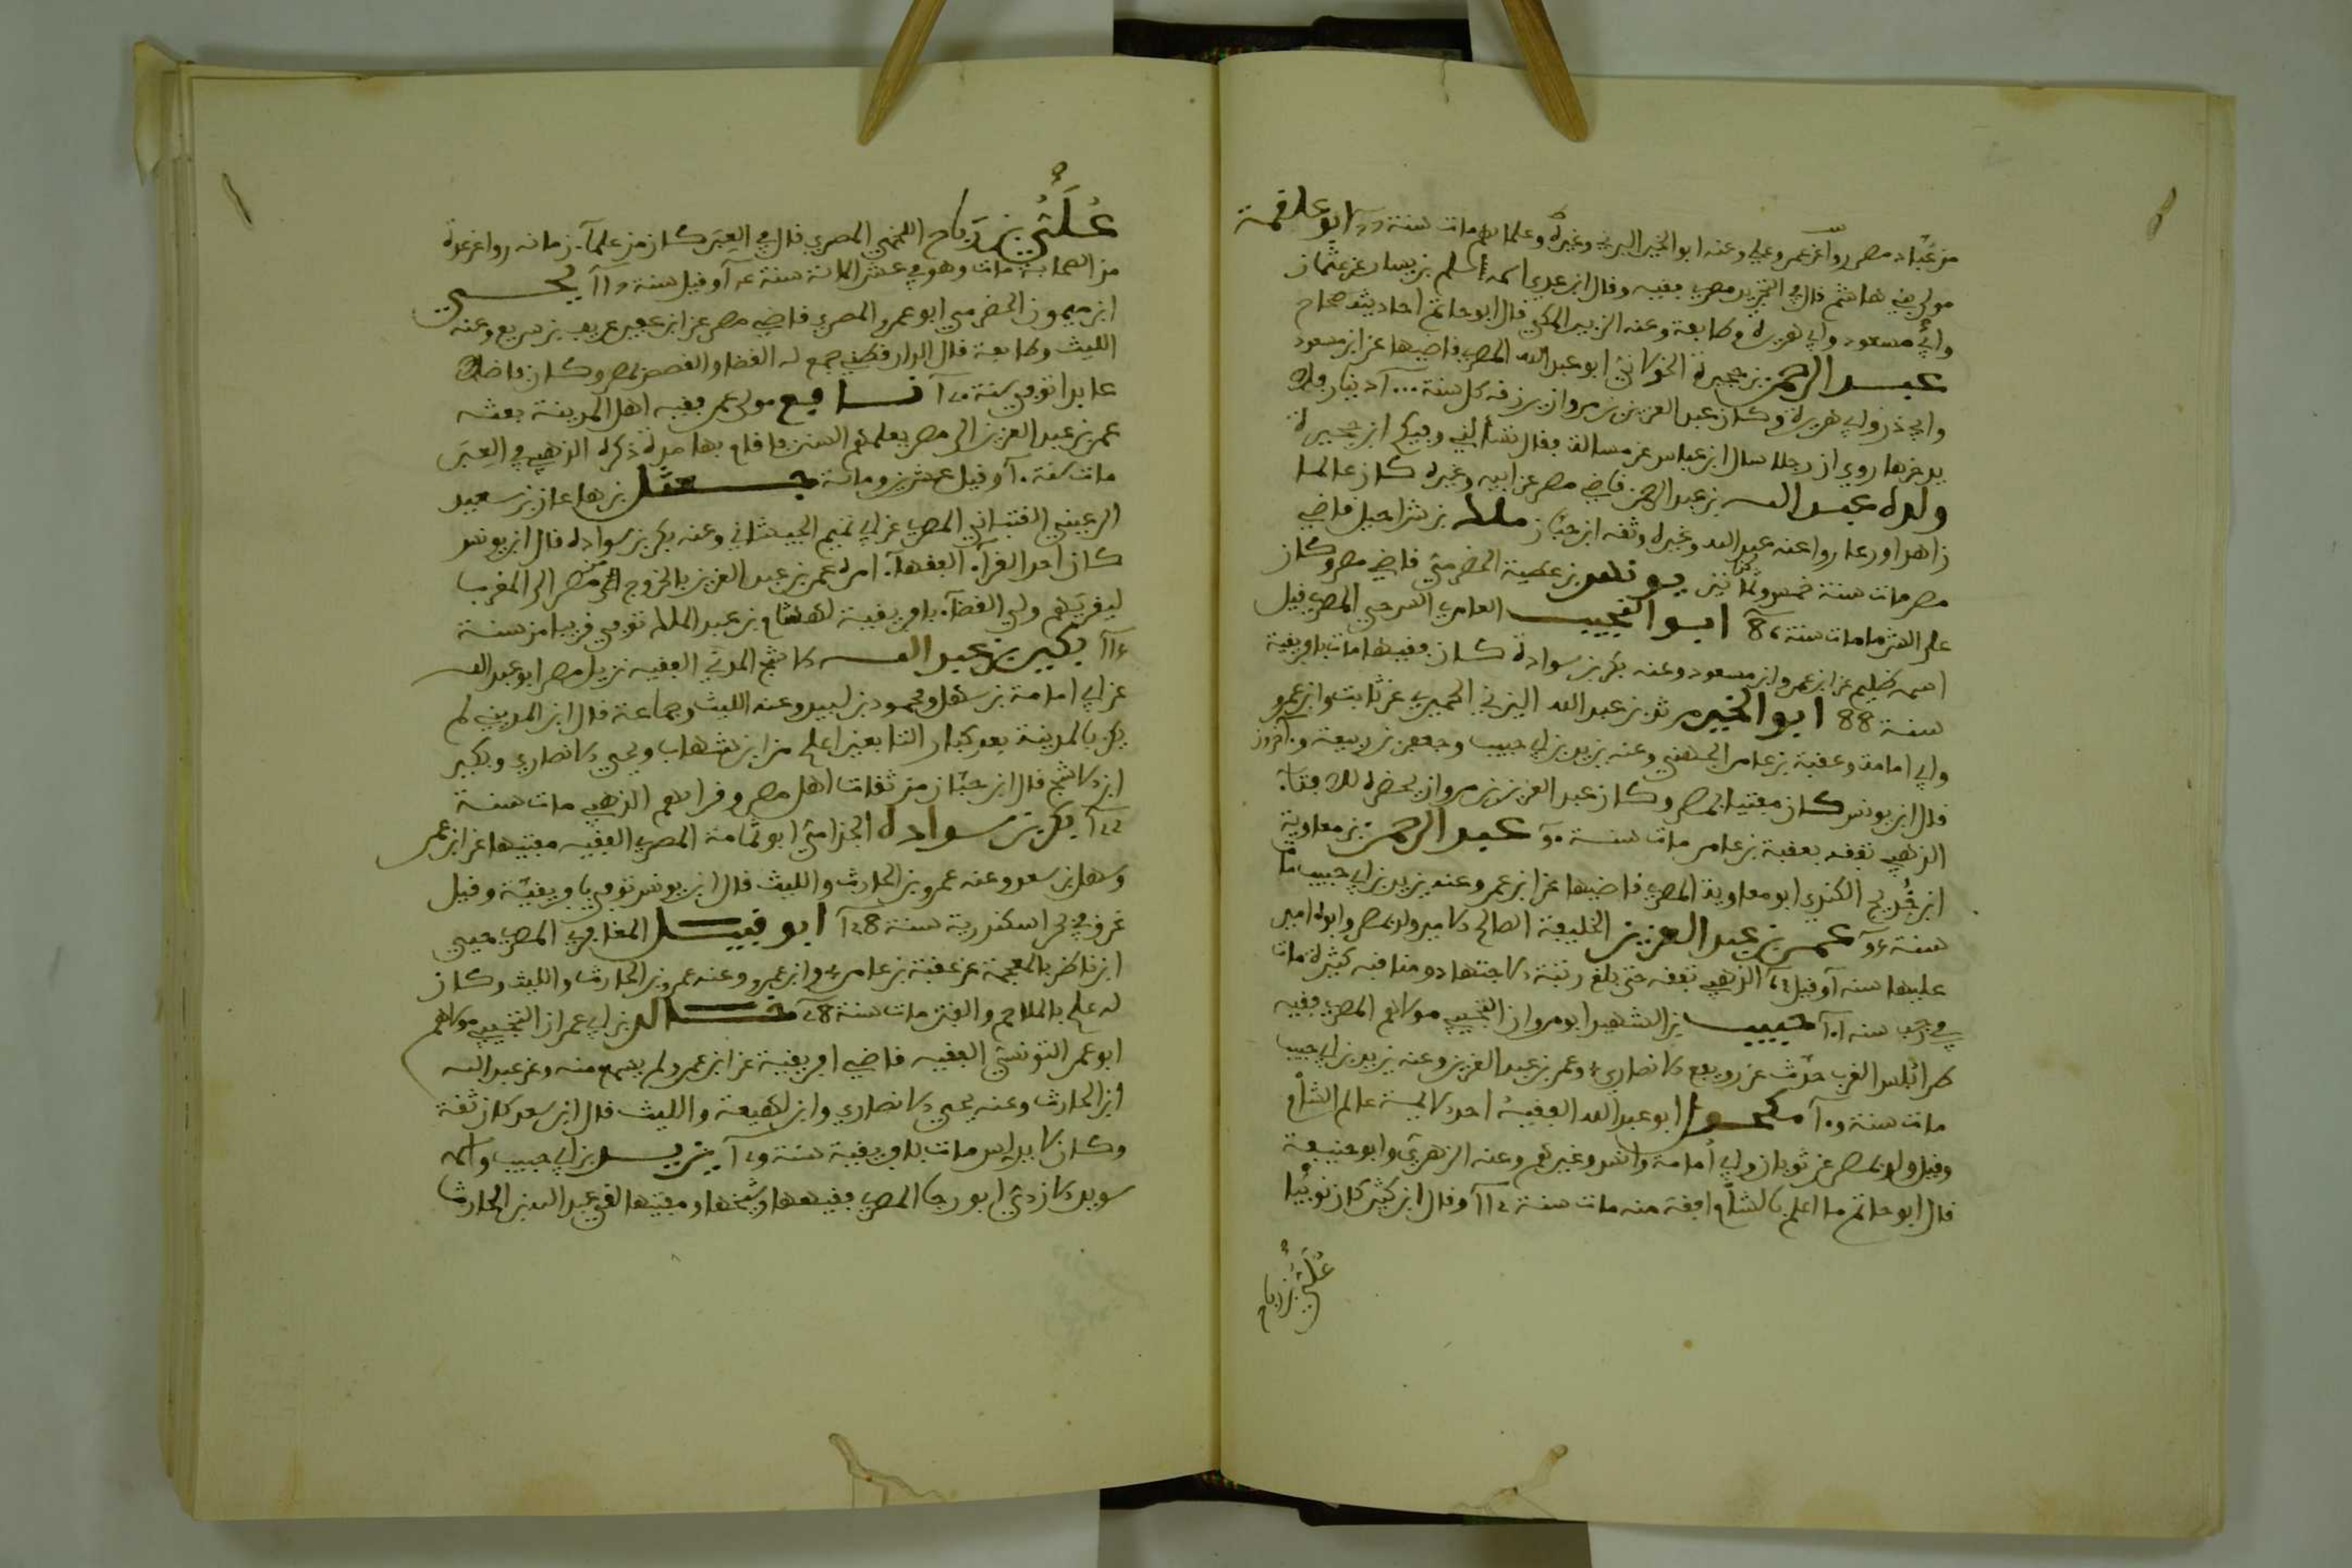 من عبّاد مصر روا عن عمر وعلي وعنه ابو الخير اليزني وغيره وعلمابهم مات سنة ابو علقمة
مولى بني هاشم قال في التجريد مصري فقيه وقال ابن عدي اسمه مسلم بن يسار عن عثمان
وابن مسعود وابي هريرة وطايفة وعنه ابو الزبير المكي قال ابو حاتم احاديثه صحاح
عبد الرحمن بن حجيرة الخولاني ابو عبد الله المصري قاضيها عن ابن مسعود
وابي ذر وابي هريرة وكان عبد العزيز بن مروان يرزقه كل سنة ١٠٠٠ دينار فلا
يدخرها روي ان رجلا سال ابن عباس عن مسالة فقال تسألني وفيكم ابن حجيرة
ولده عبد الله بن عبد الرحمن قاضي مصر عن ابيه وغيره كان عالما
زاهدا ورعا روا عنه عبد الله وغيره وثقه ابن حبّان ملك بن شراحيل قاضي
مصر مات سنة خمس وثمانين يونس بن عطية الحضرمي قاضي مصر وكان
على الشرطة مات سنة 86 ابو النجيب العامري السرحي المصري قيل
اسمه ظليم عن ابن عمر وابن مسعود وعنه بكر بن سوادة كان فقيها مات بافريقية
سنة 88 ابو الخير مرثد بن عبد الله اليزني الحميري عن ثابت وابن عمرو
وابي امامة وعقبة بن عامر الجهني وعنه يزيد بن ابي حبيب وجعفر بن ربيعة وآخرون
قال ابن يونس كان مفتيا بمصر وكان عبد العزيز بن مروان يحضره للافتاء
الذهبي تفقه بعقبة بن عامر مات سنة ٩٠ عبد الرحمن بن معاوية
ابن حُديج الكندي ابو معاوية المصري قاضيها عن ابن عمر وعنه يزيد بن ابي حبيب مات
سنة ٩٥ عمر بن عبد العزيز الخليفة الصالح الامير ولد بمصر وابوه امير
عليها سنة ٦١ وقيل ٦٣ الذهبي تفقه حتى بلغ رتبة الاجتهاد ومناقبه كثيرة مات
في رجب سنة ١٠١ حبيب بن الشهيد ابو مروان التجيبي مولاهم المصري فقيه
طرابلس الغرب حدّث عن رويفع الانصاري وعمر بن عبد العزيز وعنه يزيد بن ابي حبيب
مات سنة ١٠٩ مكحول ابو عبد الله الفقيه احد الايمة عالم الشام
وقيل ولد بمصر عن ثوبان وابي أمامة وانس وغيرهم وعنه الزهري وابو حنيفة
قال ابو حاتم ما اعلم بالشام افقه منه مات سنة ١١٢ وقال ابن كثير كان نوبيا
عُلَيُّ بن رباح
عُلَيُّ بن رَبَاح اللخمي المصري قال في العِبَر كان من علماء زمانه روا عن عدة
من الصحابة مات وهو في عشر الماية سنة وقيل سنة يحيى
ابن ميمون الحضرمي ابو عمرو المصري قاضي مصر عن ابن عم عريب بن سريع وعنه
الليث وطايفة قال الدارقطني جمع له القضا والقصص بمصر وكان فاضلا
عابدا توفي سنة نافع مولى عمر فقيه اهل المدينة بعثه
عمر بن عبد العزيز الى مصر يعلمهم السنن فاقام بها مدة ذكره الذهبي في العِبَر
مات سنة وقيل عشرين وماية جعثل بن هاعان بن سعيد
الرعيني القتباني المصري عن ابي تميم الجيشاني وعنه بكر بن سوادة قال ابن يونس
كان احد القرآء الفقهآء امره عمر بن عبد العزيز بالخروج من مصر الى المغرب
ليقريهم ولي القضآء بافريقية لهشام بن عبد الملك توفي قريبا من سنة
١١٥ بكير بن عبد الله الاشج المدني الفقيه نزيل مصر ابو عبد الله
عن ابي امامة بن سهل ومحمود بن لبيد وعنه الليث وجماعة قال ابن المديني لم
يكن بالمدينة بعد كبار التابعين اعلم من ابن شهاب ويحيى الانصاري وبكير
ابن الاشج قال ابن حبّان من ثقات اهل مصر وقرابهم الذهبي مات سنة
١٢٢ بكر بن سوادة الجذامي ابو ثمامة المصري الفقيه مفتيها عن ابن عمر
وسهل بن سعد وعنه عمرو بن الحارث والليث قال ابن يونس توفي بافريقية وقيل
غرق في بحر اسكندرية سنة 128 ابو قبيل المغافري المصري حيي
ابن ناضر بالمعجمة عن عقبة بن عامر وابن عمرو وعنه عمرو بن الحارث والليث وكان
له علم بالملاحم والفتن مات سنة 128 خالد بن ابي عمران التجيبي مولاهم
ابو عمر التونسي الفقيه قاضي افريقية عن ابن عمر ولم يسمع منه وعن عبد الله
ابن الحارث وعنه يحيى الانصاري وابن لهيعة والليث قال ابن سعد كان ثقة
وكان لا يدلس مات بافريقية سنة ١٢٩ يزيد بن ابي حبيب واسمه
سويد الازدي ابو رجا المصري فقيهها وشيخها ومفتيها لقي عبد الله بن الحارث